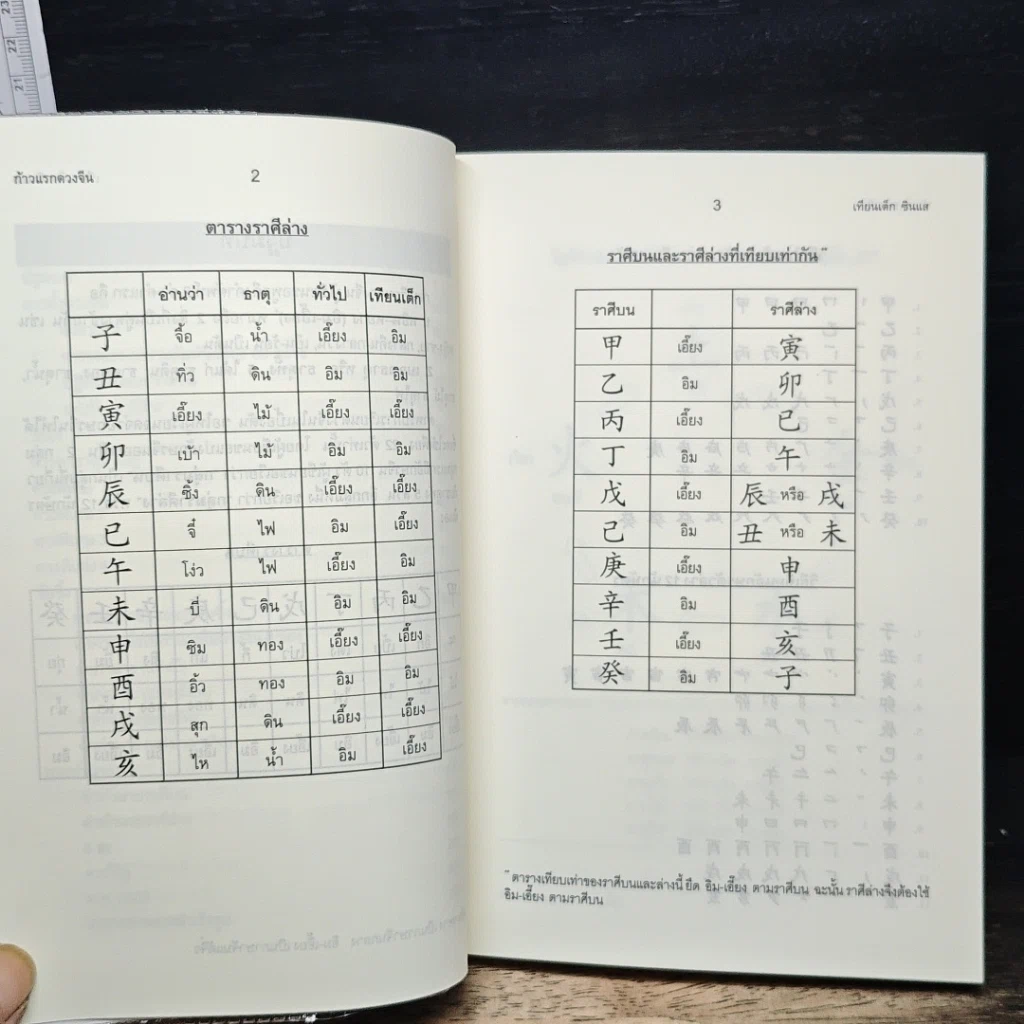 23
22
21
ก้าวแรกดวงจีน 2
ตารางราศีล่าง
อ่านว่า ธาตุ ทั่วไป เทียนเต็ก
子 จื้อ น้ำ เอี๊ยง อิม
丑 ทิ่ว ดิน อิม อิม
寅 เอี๊ยง ไม้ เอี๊ยง เอี๊ยง
卯 เบ้า ไม้ อิม อิม
辰 ซิ้ง ดิน เอี๊ยง เอี๊ยง
巳 จี๋ ไฟ อิม เอี๊ยง
午 โง่ว ไฟ เอี๊ยง อิม
未 บี่ ดิน อิม อิม
申 ซิม ทอง เอี๊ยง เอี๊ยง
酉 อิ้ว ทอง อิม อิม
戌 สุก ดิน เอี๊ยง เอี๊ยง
亥 ไห น้ำ อิม เอี๊ยง
3 เทียนเต็ก ซินแส
ราศีบนและราศีล่างที่เทียบเท่ากัน **
ราศีบน ราศีล่าง
甲 เอี๊ยง 寅
乙 อิม 卯
丙 เอี๊ยง 巳
丁 อิม 午
戊 เอี๊ยง 辰 หรือ 戌
己 อิม 丑 หรือ 未
庚 เอี๊ยง 申
辛 อิม 酉
壬 เอี๊ยง 亥
癸 อิม 子
** ตารางเทียบเท่าของราศีบนและล่างนี้ ยึด อิม-เอี๊ยง ตามราศีบน ฉะนั้น ราศีล่างจึงต้องใช้
อิม-เอี๊ยง ตามราศีบน